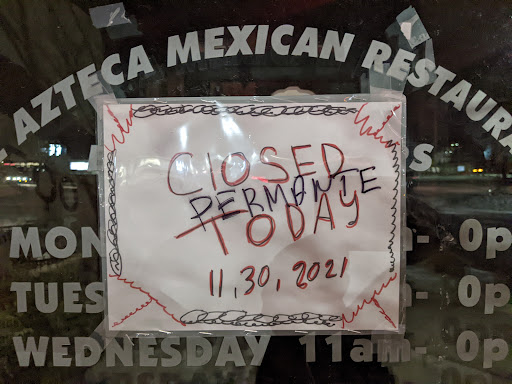 AZTECA MEXICAN RESTAURA
CLOSED
PERMANTE
TODAY
11, 30, 2021
MON m- 0p
TUES m- 0p
WEDNESDAY 11am- 0p